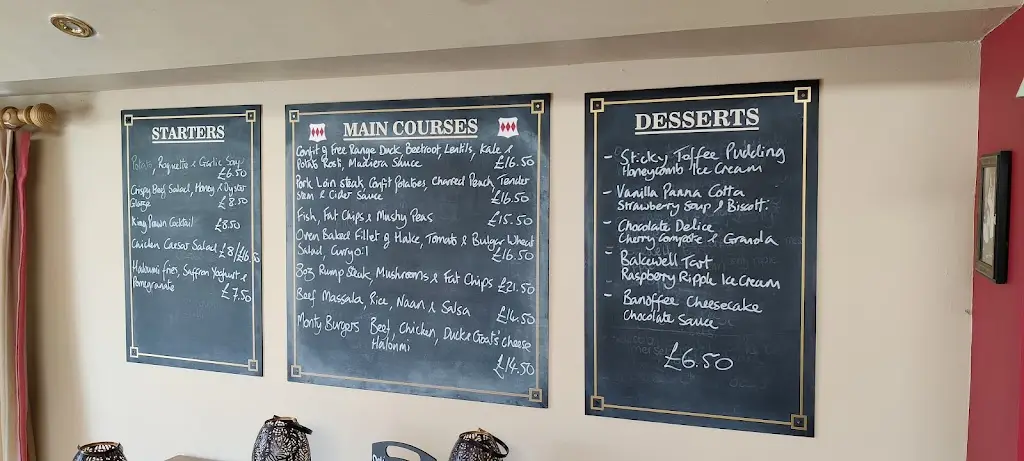 STARTERS
Potato, Roquette & Garlic Soup
£6.50
Crispy Beef Salad, Honey & Oyster
Glaze £8.50
King Prawn Cocktail £8.50
Chicken Caesar Salad £8/£16.50
Haloumi fries, Saffron Yoghurt &
Pomegranate £7.50
MAIN COURSES
Confit of Free Range Duck, Beetroot, Lentils, Kale &
Potato Rosti, Madiera Sauce £16.50
Pork Loin steak, Confit Potatoes, Charred Peach, Tender
Stem & Cider Sauce £16.50
Fish, Fat Chips & Mushy Peas £15.50
Oven Baked Fillet of Hake, Tomato & Bulgar Wheat
Salad, Curry oil £16.50
8oz Rump Steak, Mushrooms & Fat Chips £21.50
Beef Massala, Rice, Naan & Salsa £14.50
Monty Burgers Beef, Chicken, Duck & Goat's cheese
Haloumi
£14.50
DESSERTS
- Sticky Toffee Pudding
Honeycomb Ice Cream
- Vanilla Panna Cotta
Strawberry Soup & Biscotti
- Chocolate Delice
Cherry compote & Granola
- Bakewell Tart
Raspberry Ripple Ice Cream
- Banoffee Cheesecake
Chocolate Sauce
£6.50